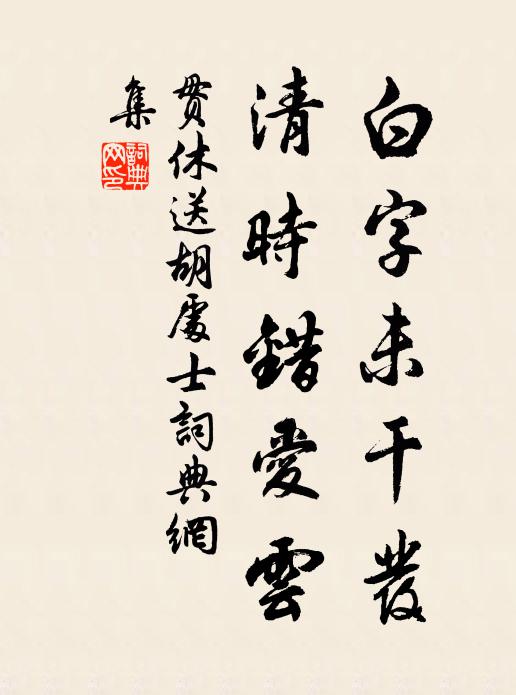 白字未干發
清時錯愛雲
貫休送胡處士詞典網
集
詞典網印